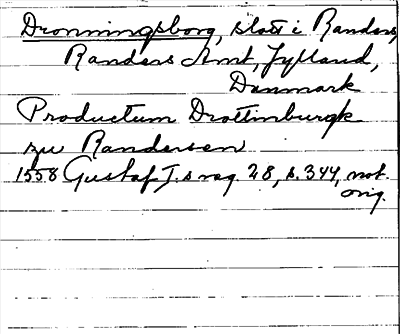 Dronningsborg, slott i Randers,
Randers Amt, Jylland,
Danmark
Productum Drottinburgk
zu Randersen
1558 Gustaf I.s reg. 28, s. 344, not.
orig.